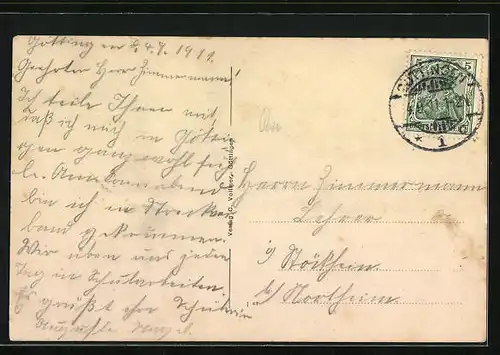 Götting en d. 4. 7. 1911.
Geehrter Herr Zimmermann!
Ich teile Ihnen mit,
daß ich mich in Göttin
gen ganz wohl füh
le. Am Sonnabend
bin ich in
gekommen.
Wir üben uns jeden
Tag in Schularbeiten
Es grüßt ihr Schüler
Auguste
Verlag O. Vollmer, Göttingen
Herrn Zimmermann
Lehrer
in Stöckheim
b/ Northeim
5
GÖTTINGEN
* 1